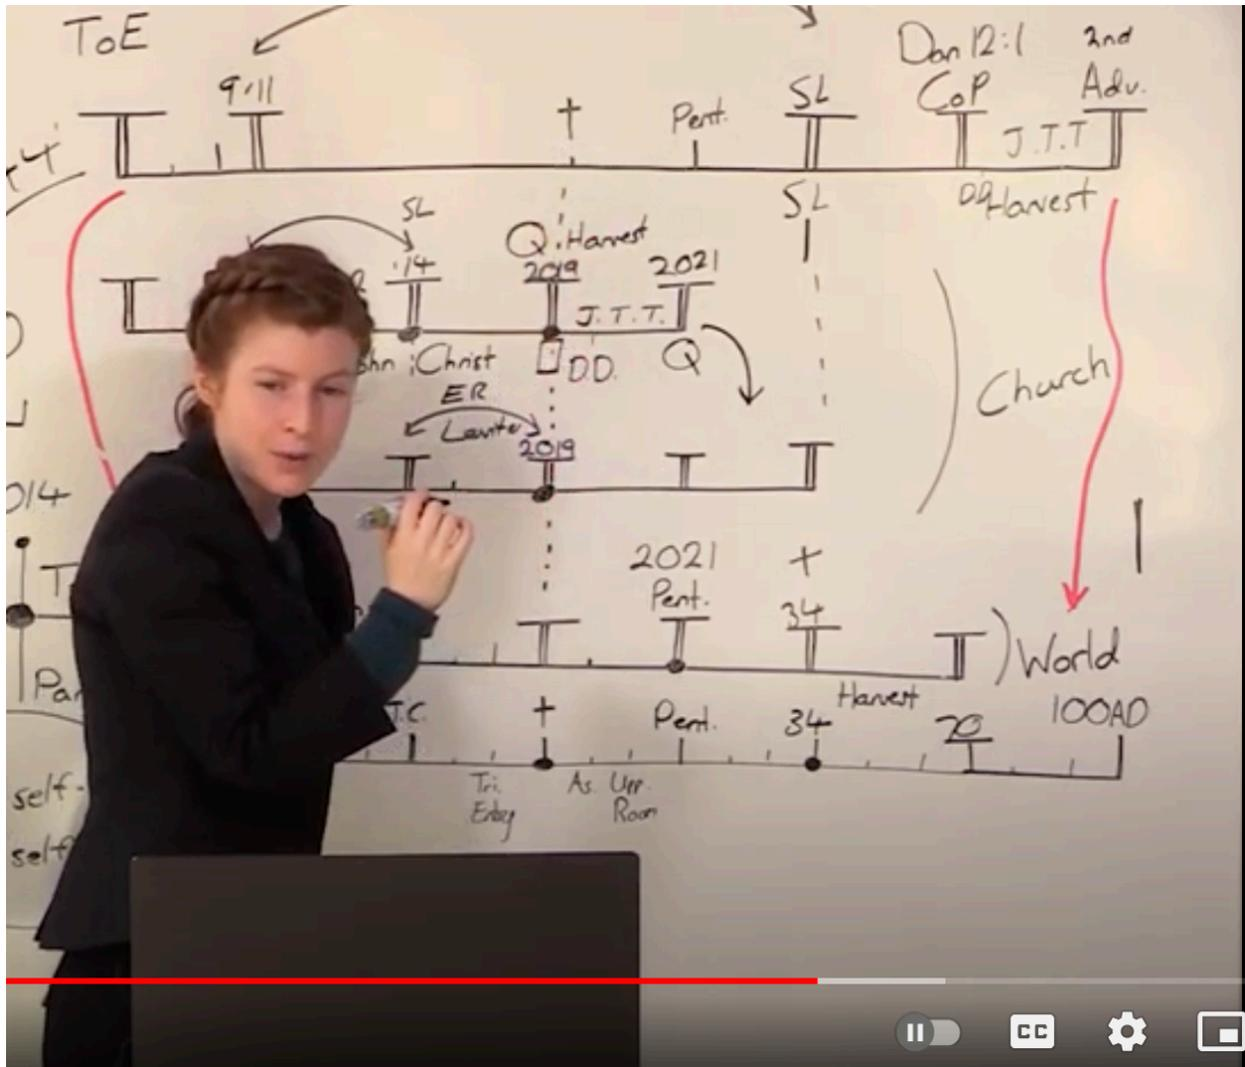 ToE
9/11
†
Pent.
SL
Dan 12:1
CoP
2nd
Adv.
J.T.T
SL
DD
Harvest
SL
:14
Q:Harvest
2019
2021
J.T.T.
ohn ; Christ
D.D.
Q
Church
ER
Levite
2019
014
2021
Pent.
+
34
World
Harvest
Par
J.C.
+
Pent.
34
70
100AD
Tri.
Entry
As. Upp.
Room
self-
self
CC